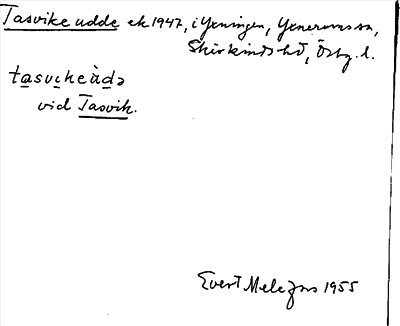 Tasvike udde ek 1947, i Yxningen, Yxnerums sn,
Skärkinds hd, Östg. l.
tasvikeùdə
vid Tasvik.
Evert Melefors 1955